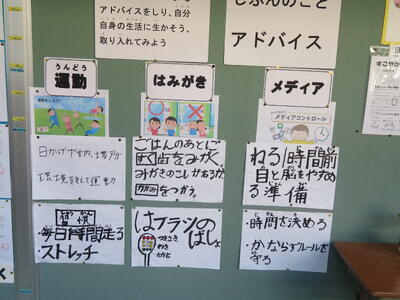 アドバイスをしり、自分
自身の生活に生かそう、
取り入れてみよう
じぶんのこと
アドバイス
うんどう
運動
はみがき
メディア
メディアコントロール
日かげや室内、場所
環境を考えて運動
ごはんのあとに
すぐ歯をみがく
みがきのこしがあるか
かがみをつかう。
ねる1時間前
目と脳をやすめ
る準備
習慣
・毎日1時間走る
・ストレッチ
はブラシの
ばしょ
つまさき
わき
かかと
・時間を決める
・かならずルールを
守る